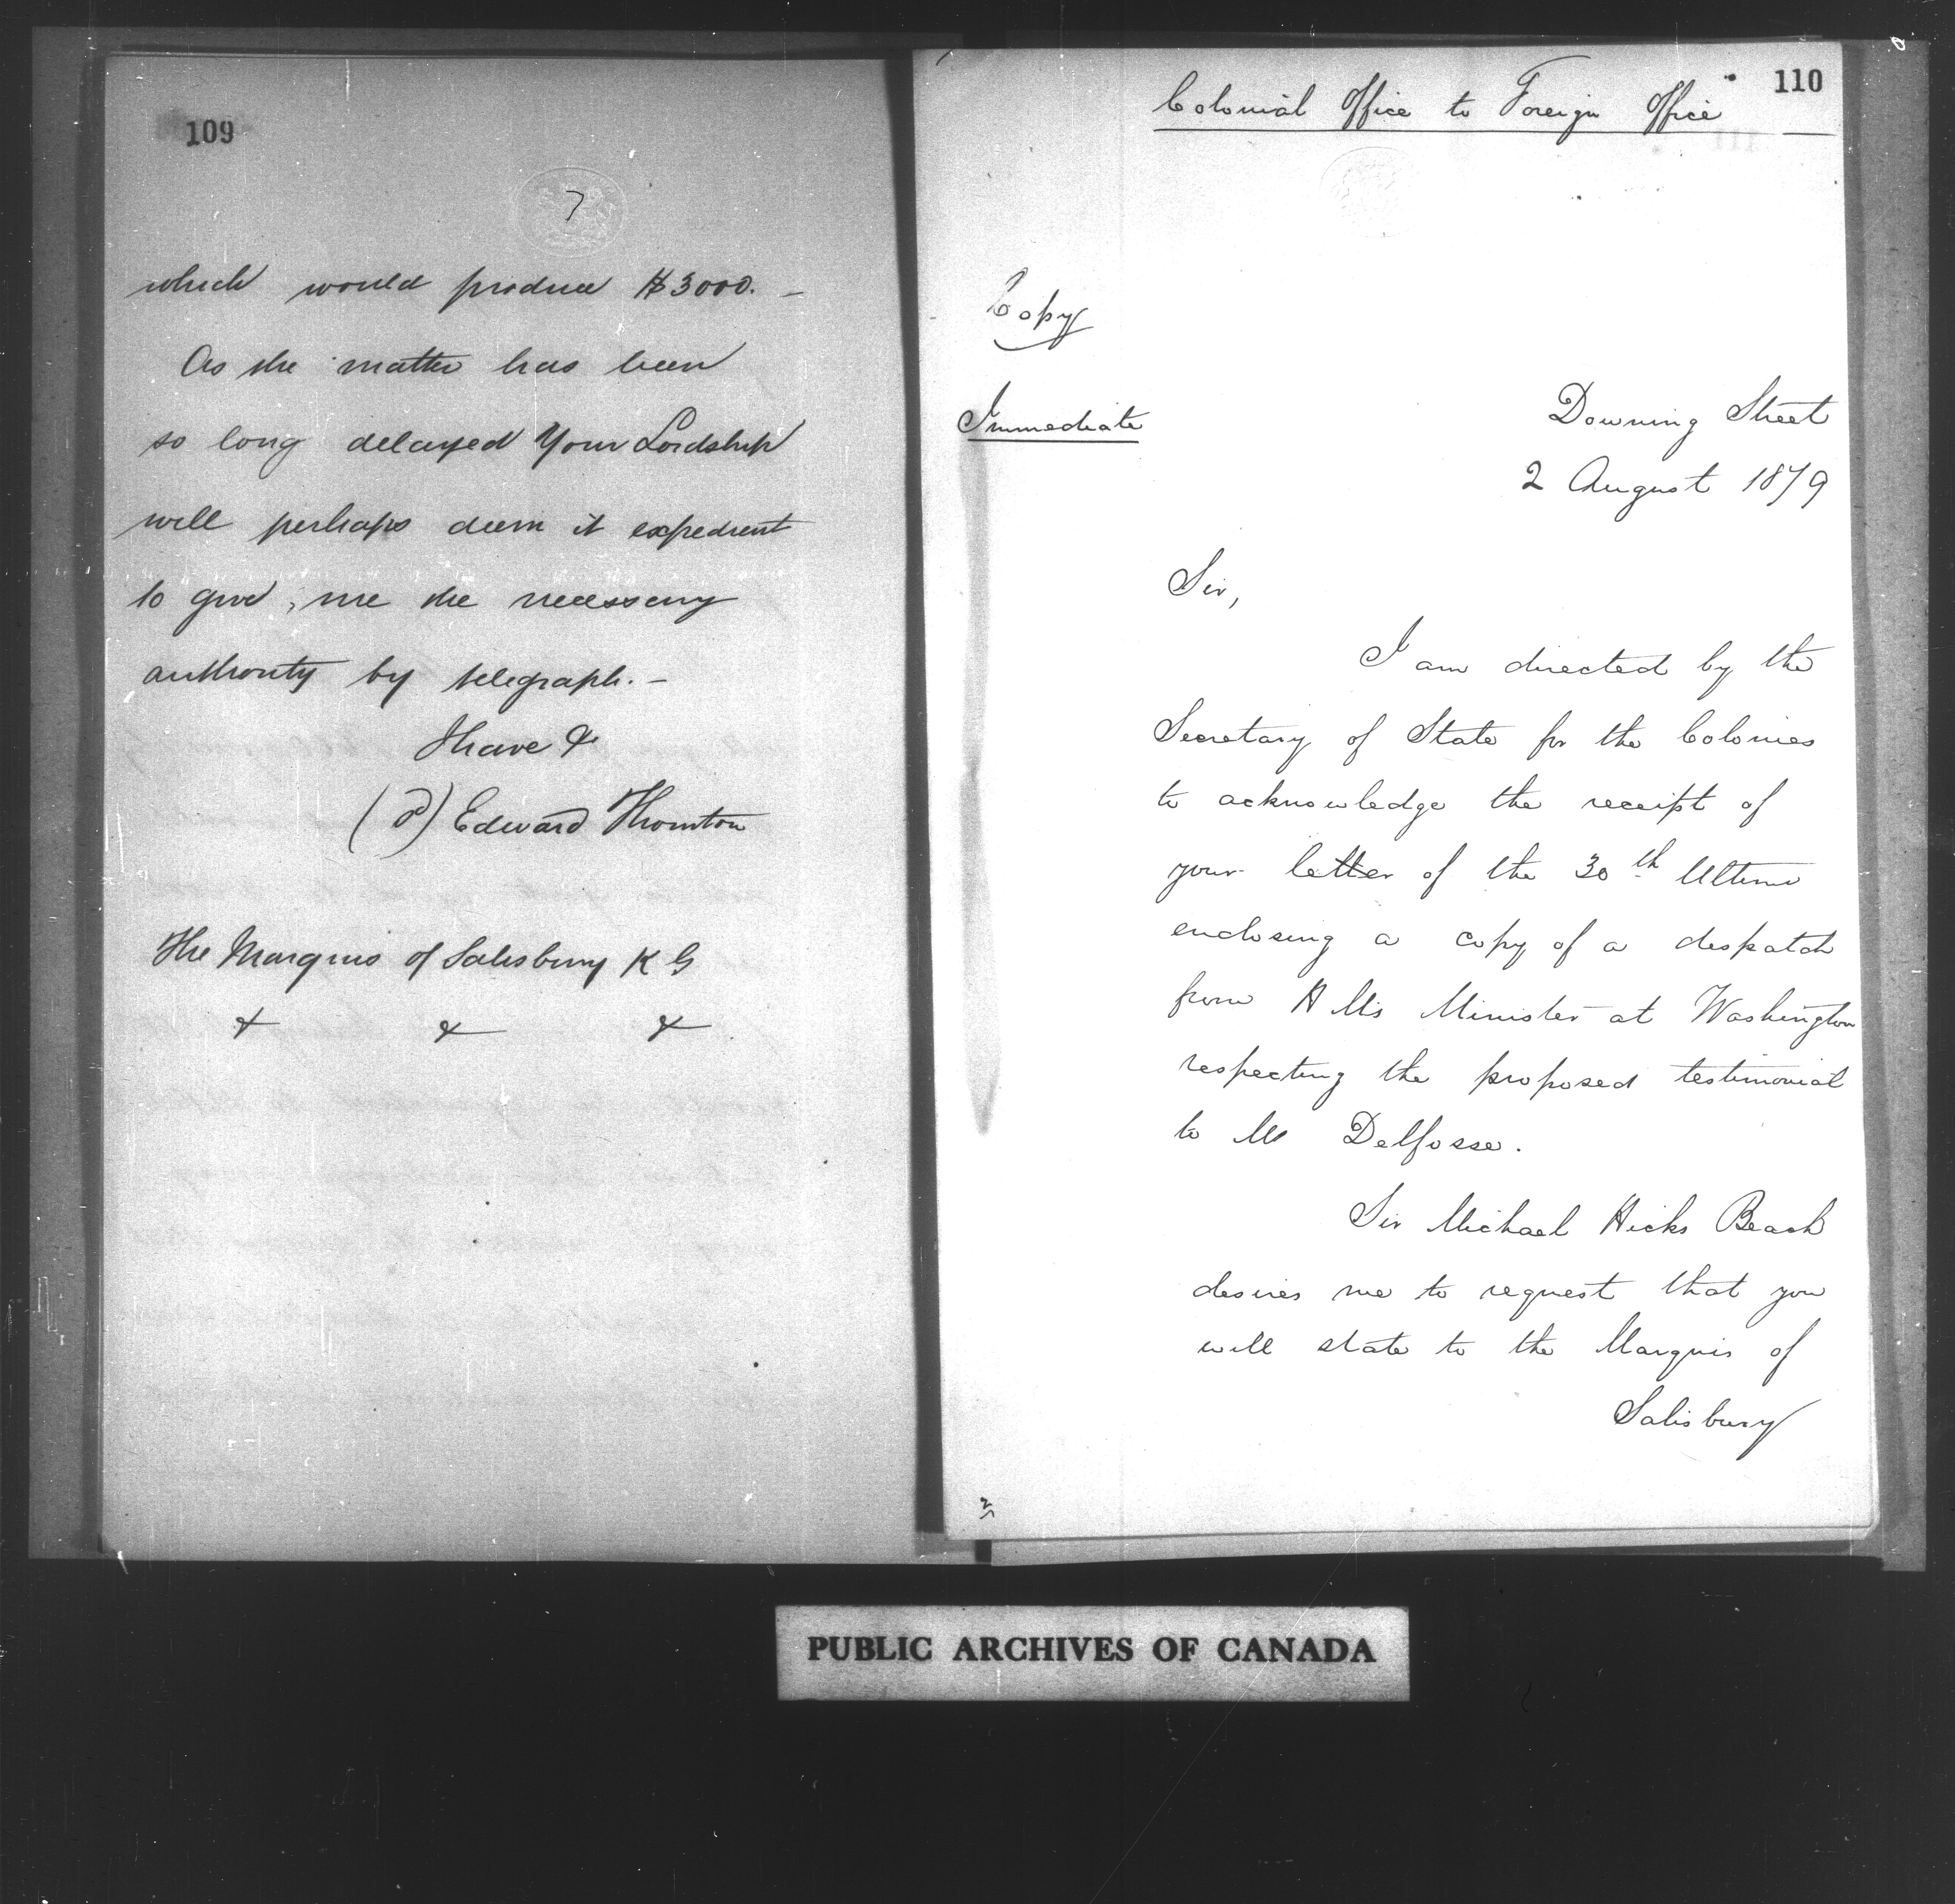 109
7
which would produce $3000. –
As the matter has been
so long delayed Your Lordship
will perhaps deem it expedient
to give me the necessary
authority by telegraph. –
I have &
(sd) Edward Thornton
The Marquis of Salisbury K G
& & &
110
Colonial Office to Foreign Office
Copy
Immediate
Downing Street
2 August 1879
Sir,
I am directed by the
Secretary of State for the Colonies
to acknowledge the receipt of
your letter of the 30th Ultimo
enclosing a copy of a despatch
from H M's Minister at Washington
respecting the proposed testimonial
to M Delfosse.
Sir Michael Hicks Beach
desires me to request that you
will state to the Marquis of
Salisbury
PUBLIC ARCHIVES OF CANADA